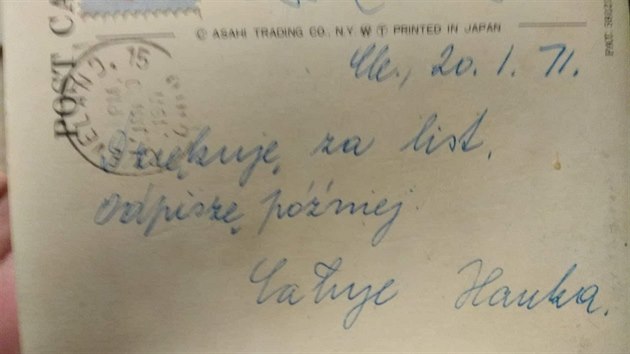 POST CA
© ASAHI TRADING CO., N.Y. W T PRINTED IN JAPAN
15
Cle., 20. 1. 71.
Dziękuję za list,
odpiszę później.
Całuję Hanka.